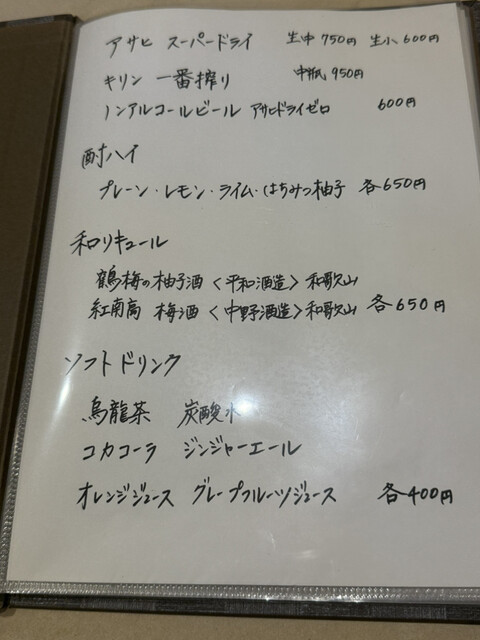 アサヒ スーパードライ 生中 750円 生小 600円
キリン 一番搾り 中瓶 950円
ノンアルコールビール アサヒドライゼロ 600円
酎ハイ
プレーン・レモン・ライム・はちみつ柚子 各650円
和リキュール
鶴梅の柚子酒 <平和酒造> 和歌山
紅南高 梅酒 <中野酒造> 和歌山 各650円
ソフトドリンク
烏龍茶 炭酸水
コカコーラ ジンジャーエール
オレンジジュース グレープフルーツジュース 各400円